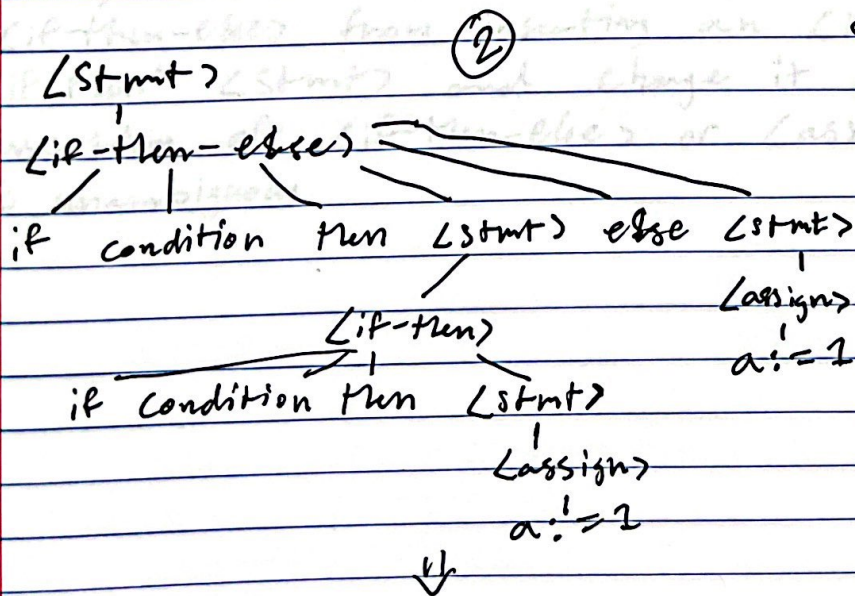 ②
<Stmt>
<if-then-else>
if condition then <stmt> else <stmt>
<if-then> <assign>
a:=1
if condition then <stmt>
<assign>
a:=1
⇓